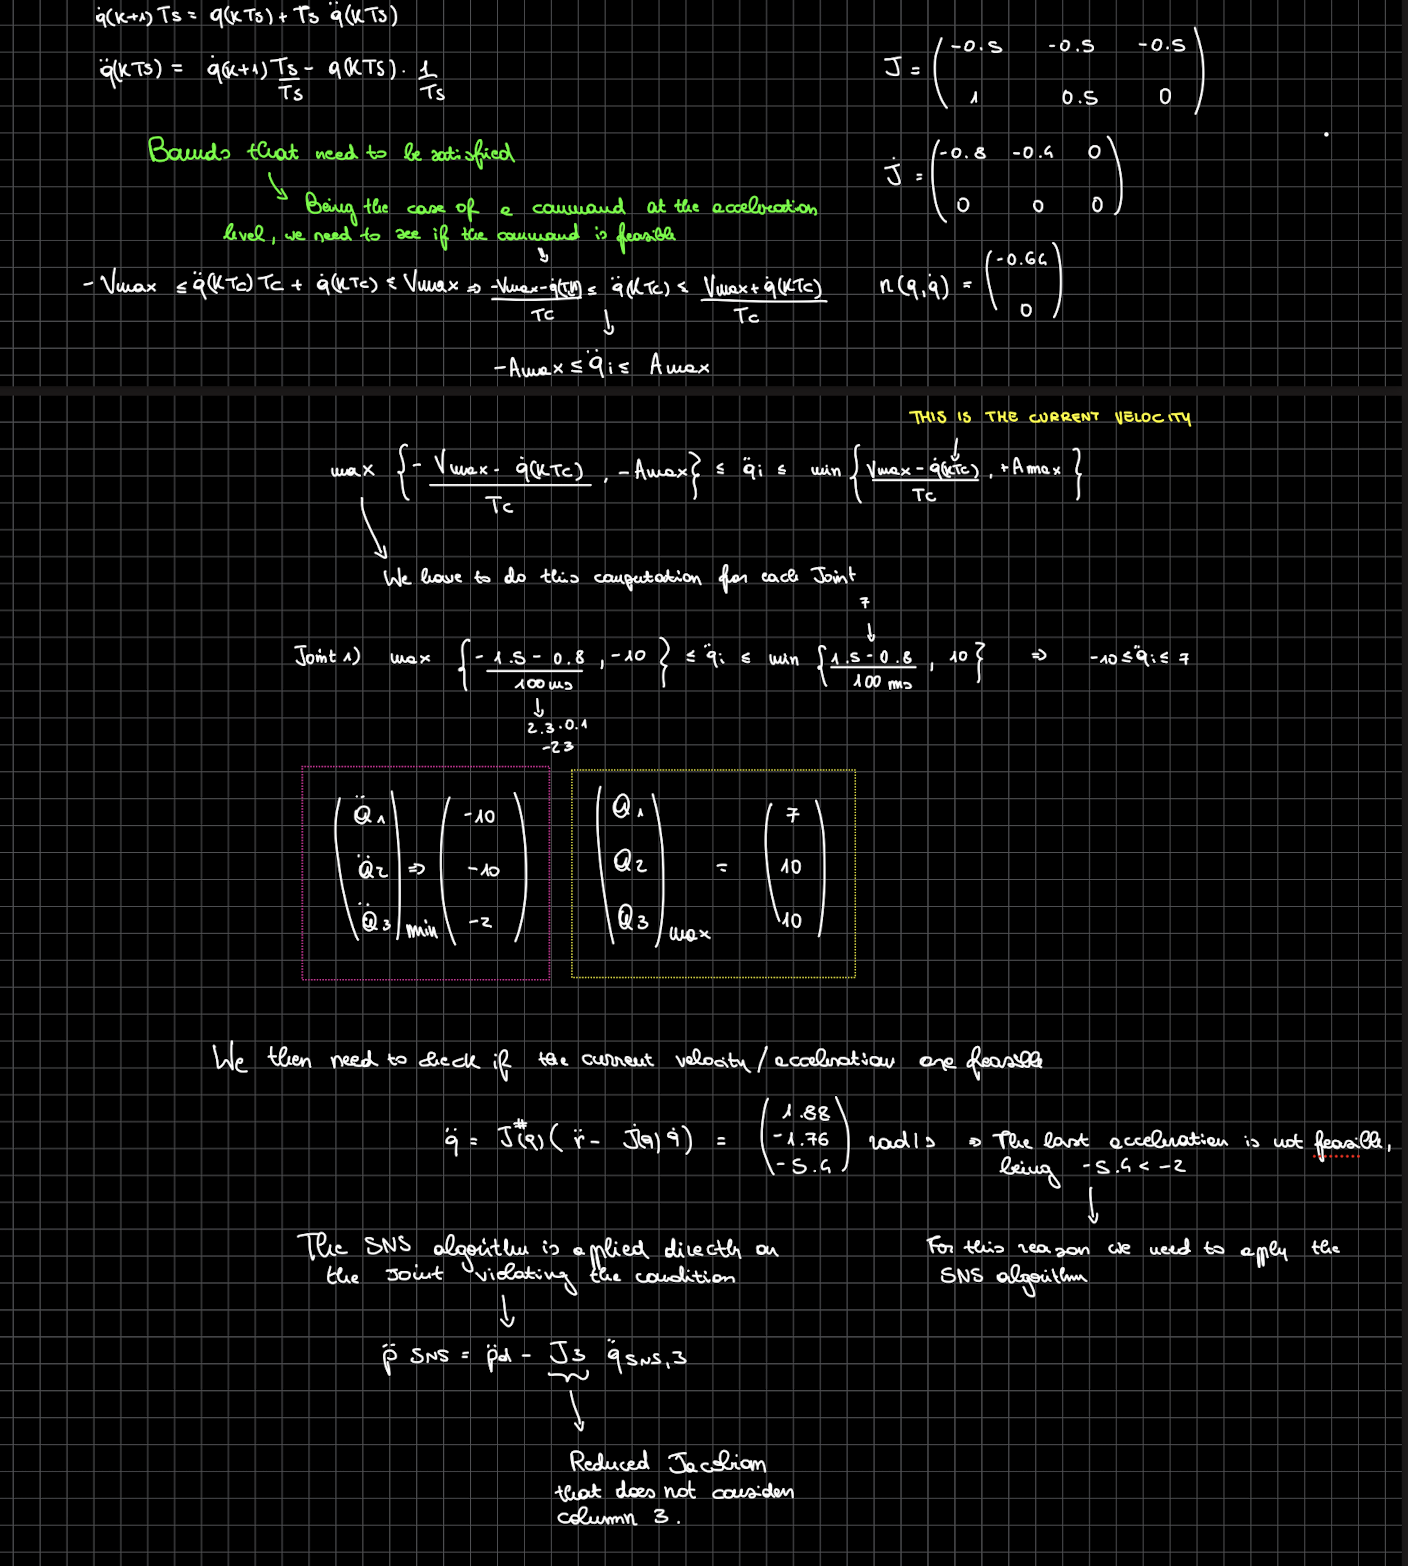 q̇(K+1)Ts = q(KTs) + Ts q̈(KTs)
q̈(KTs) = q̇(K+1) Ts/Ts - q(KTS) · 1/Ts
J = (-0.5 -0.5 -0.5
1 0.5 0)
Bounds that need to be satisfied
J̇ = (-0.8 -0.4 0
0 0 0)
Being the case of a command at the acceleration
level, we need to see if the command is feasible
-Vmax ≤ q̈(KTc)Tc + q̇(KTc) ≤ Vmax ⇒ (-Vmax-q̇(TK))/Tc ≤ q̈(KTc) ≤ (Vmax+q̇(KTc))/Tc
n(q,q̇) = (-0.64
0)
-Amax ≤ q̈i ≤ Amax
THIS IS THE CURRENT VELOCITY
max {- (Vmax - q̇(KTc))/Tc , -Amax} ≤ q̈i ≤ min {(Vmax - q̇(KTc))/Tc , +Amax}
We have to do this computation for each Joint
7
Joint 1) max {(-1.5-0.8)/100ms , -10} ≤ q̈i ≤ min {(1.5-0.8)/100ms , 10} ⇒ -10≤q̈i≤7
2.3·0.1
-23
(Q̈1
Q̈2
Q̈3)min ⇒ (-10
-10
-2)
(Q1
Q2
Q3)max = (7
10
10)
We then need to check if the current velocity/acceleration are feasible
q̈ = J#(q)(r̈ - J̇(q)q̇) = (1.88
-1.76
-5.4) rad/s ⇒ The last acceleration is not feasible,
being -5.4 < -2
The SNS algorithm is applied directly on
the Joint violating the condition
For this reason we need to apply the
SNS algorithm
p̈ SNS = p̈d - J3 q̈SNS,3
Reduced Jacobian
that does not consider
column 3.